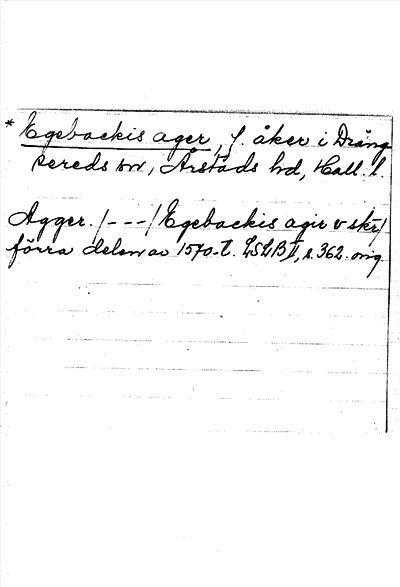 * Egebackis ager, f. åker i Dräng
sereds sn, Årstads hd, Hall. l.
Agger. /---/ Egebackis agir v skr/
förra delen av 1570-t. LSLB II, s. 362. orig